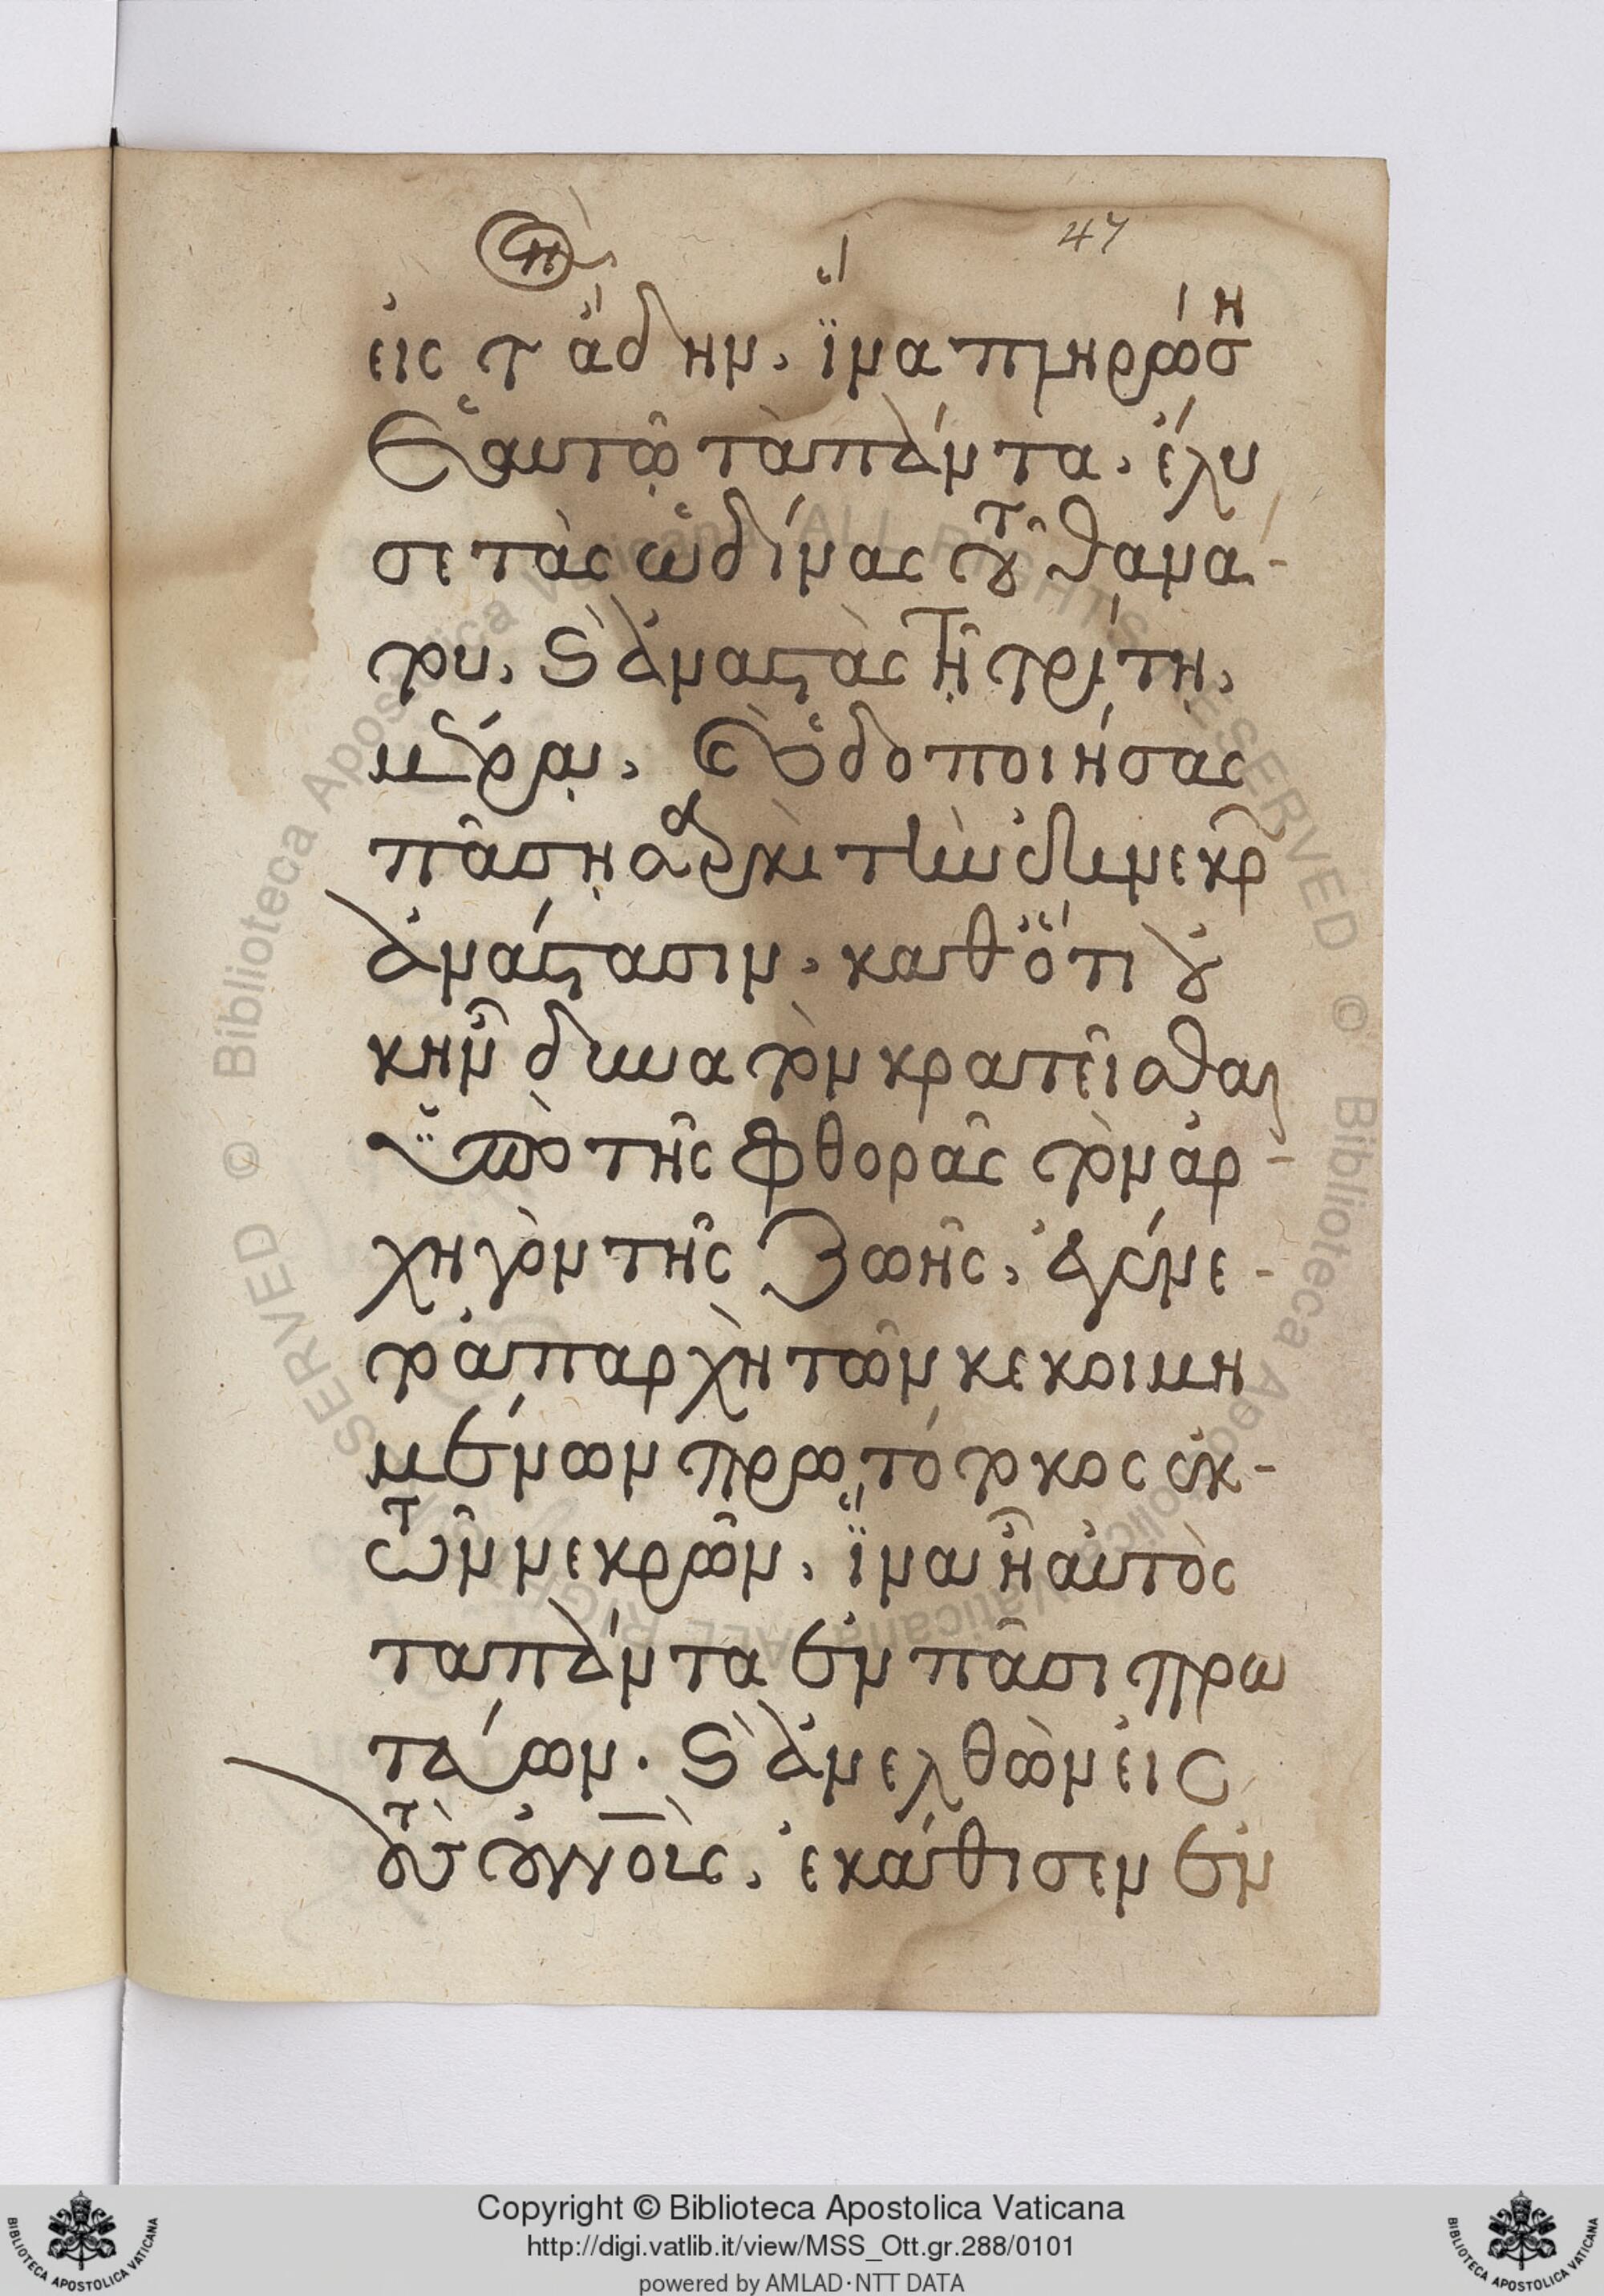 47
εἰς τ ἅδην. ἵνα πληρώσῃ
ἑαυτῷ τὰ πάντα. ἔλυ
σε τὰς ὠδίνας τοῦ θανά-
του. καὶ ἀναστὰς τῇ τρίτῃ.
ἡμέρᾳ. καὶ ὁδοποιήσας
πάσῃ σαρκὶ τὴν ἐκ νεκρῶν
ἀνάστασιν. καθότι οὐ
κ ἦν δυνατὸν κρατεῖσθαι
ὑπὸ τῆς φθορᾶς τὸν ἀρ-
χηγὸν τῆς ζωῆς. ἐγένε-
το ἀπαρχὴ τῶν κεκοιμη
μένων πρωτότοκος ἐκ-
τῶν νεκρῶν. ἵνα ᾖ αὐτὸς
τα πάντα ἐν πᾶσι πρω
τεύων. καὶ ἀνελθὼν εἰς
τοὺς οὐνοὺς. ἐκάθισεν ἐν
Copyright © Biblioteca Apostolica Vaticana
http://digi.vatlib.it/view/MSS_Ott.gr.288/0101
powered by AMLAD·NTT DATA
BIBLIOTECA APOSTOLICA VATICANA
BIBLIOTECA APOSTOLICA VATICANA